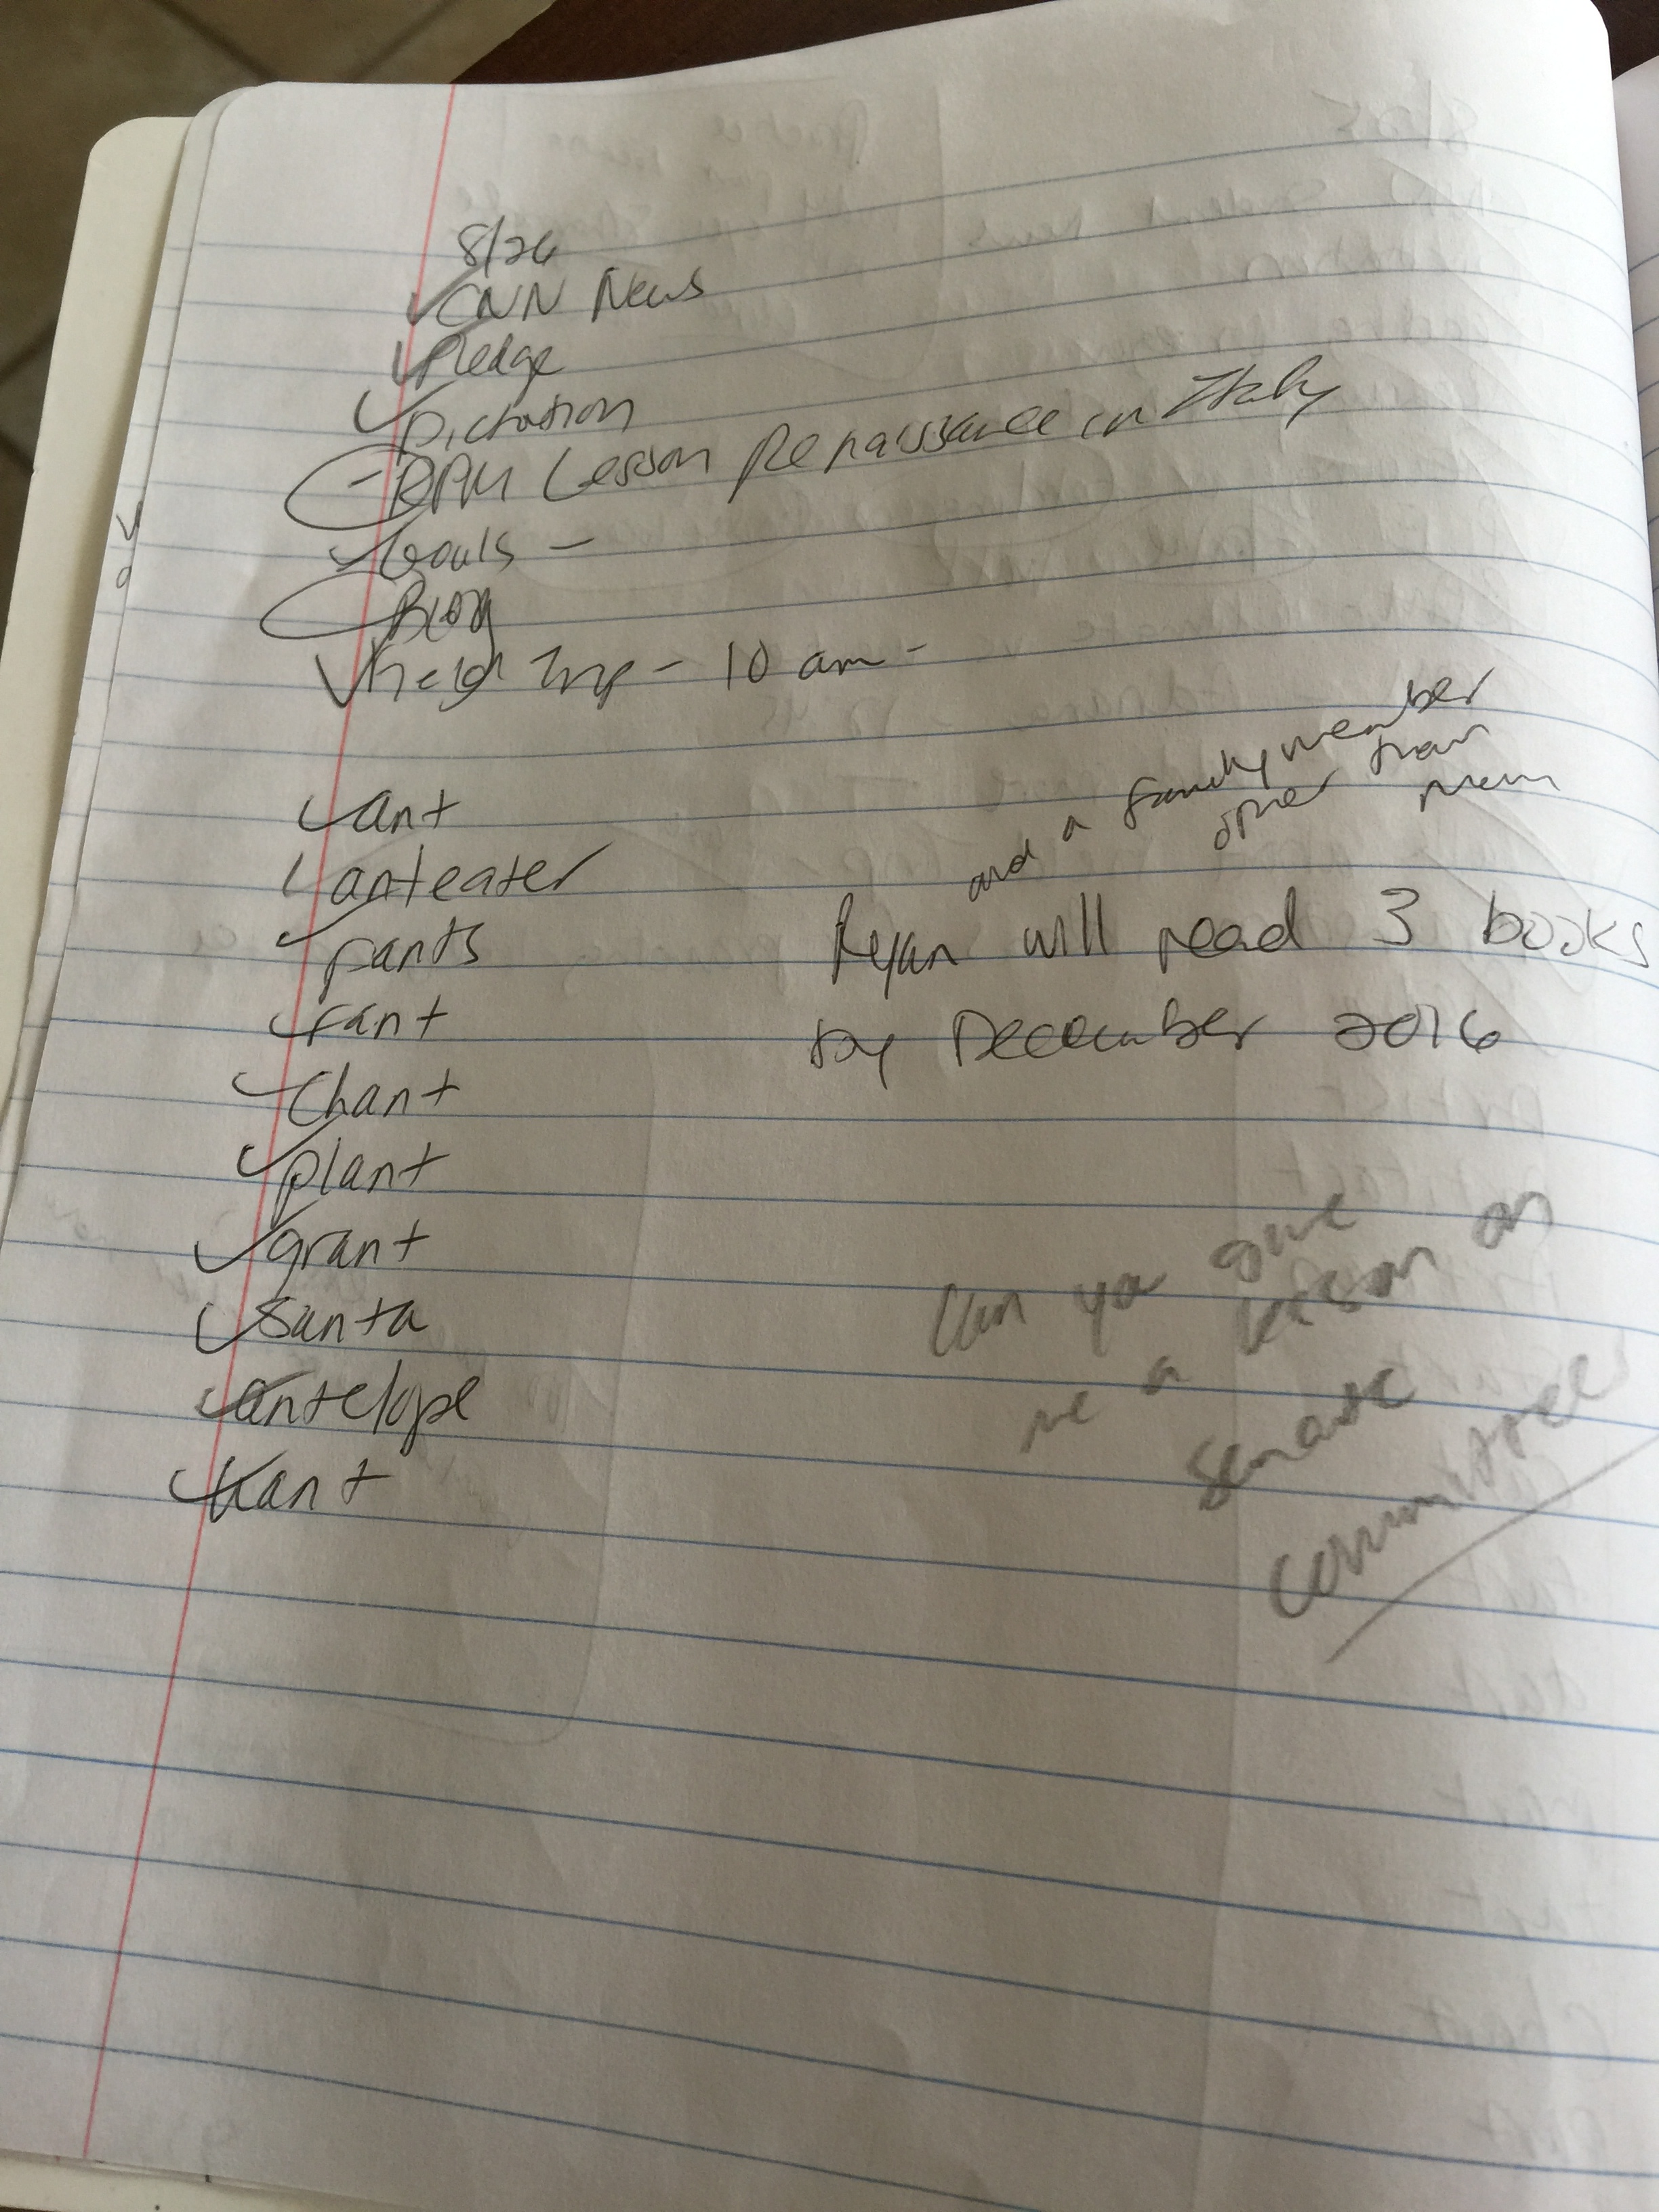 8/26
CNN News
Pledge
Dictation
RPM Lesson Renaissance in Italy
Goals -
Blog
Field Trip - 10 am -
ant
anteater
pants
rant
chant
plant
grant
Santa
antelope
Kant
and a family member
other than
mom
Ryan will read 3 books
by December 2016
Can you give
me a lesson on
senate
committees